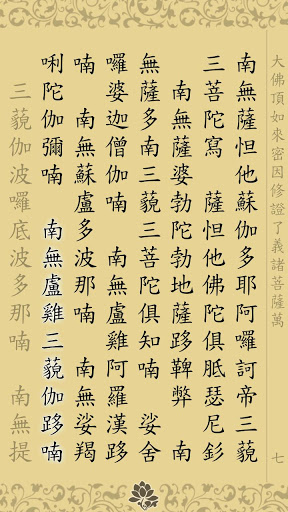 大佛頂如來密因修證了義諸菩薩萬 七
南無薩怛他蘇伽多耶阿囉訶帝三藐
三菩陀寫 薩怛他佛陀俱胝瑟尼釤
南無薩婆勃陀勃地薩跢鞞弊 南
無薩多南三藐三菩陀俱知喃 娑舍
囉婆迦僧伽喃 南無盧雞阿羅漢跢
喃 南無蘇盧多波那喃 南無娑羯
唎陀伽彌喃 南無盧雞三藐伽跢喃
三藐伽波囉底波多那喃 南無提